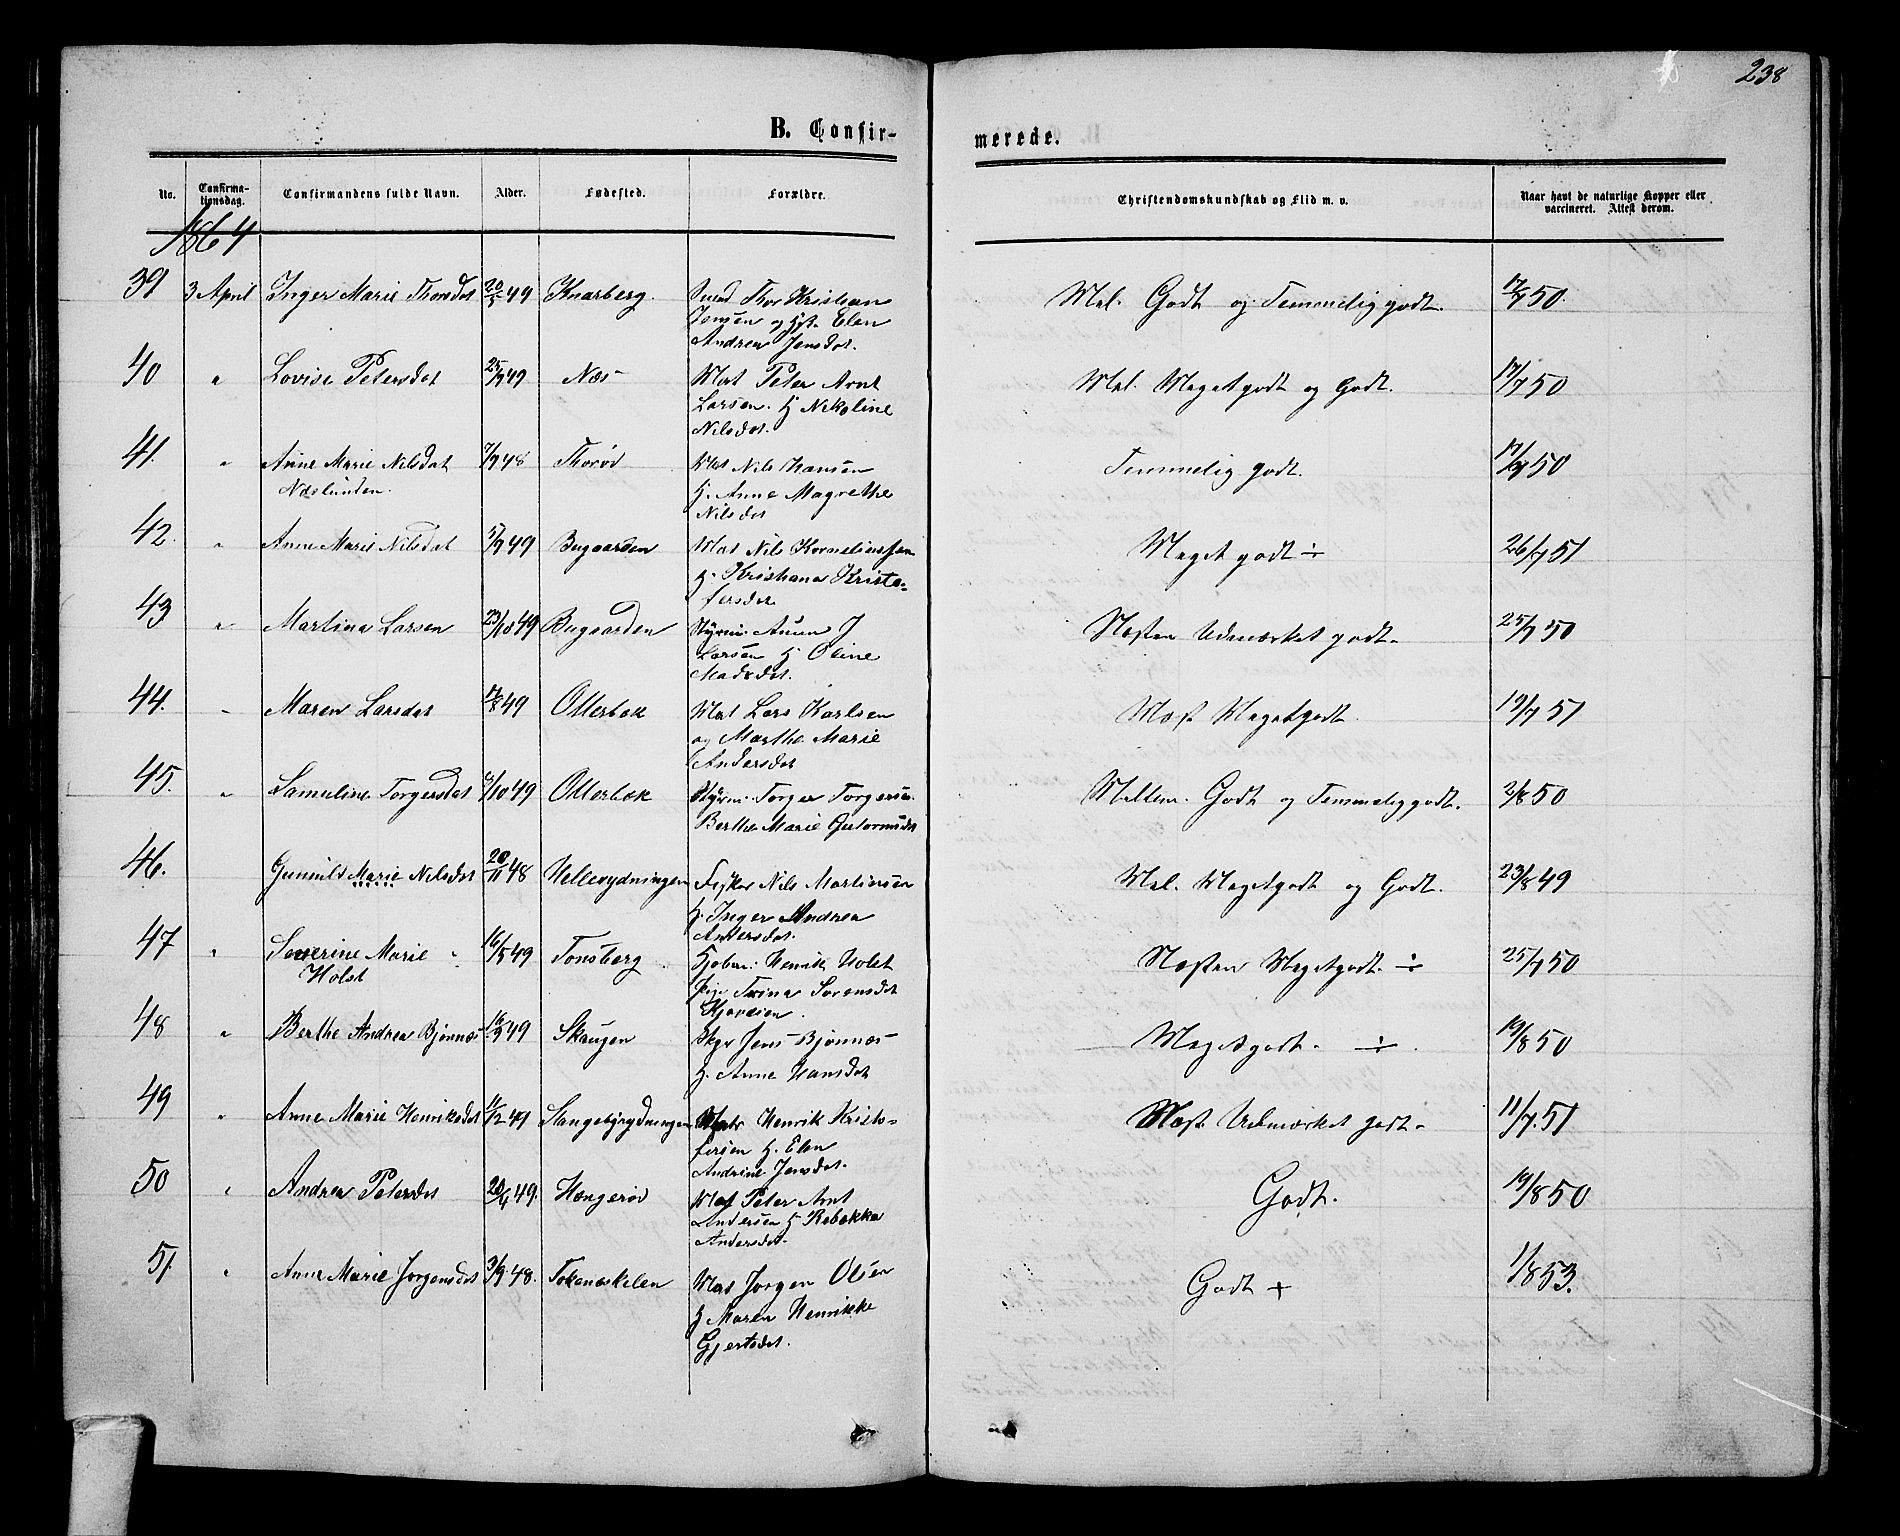 238
B. Confir-
merede.
No.
Confirma-
tionsdag.
Confirmandens fulde Navn.
Alder.
Fødested.
Forældre.
Christendomskundskab og Flid m. v.
Naar havt de naturlige Kopper eller
vaccineret. Attest derom.
1864
39 3 April Inger Marie Thorsdat 49 Knarberg. Thor Kristian
Jensen og Elen
Andrea Jensdat.
Mel. Godt og Temmelig godt. 17/7 50.
40 " Lovise Petersdat 25/7 49 Næs Mat Peter Arnt
Larsen. H Nikoline
Nilsdat.
Mel. Megetgodt og Godt. 17/7 50
41. " Anne Marie Nilsdat 7/7 48 Thorød Mat Nils Hansen
Næslunden. H. Anne Magrethe
Nilsdat
Temmelig godt. 17/7 50
42. " Anne Marie Nilsdat 49 Bugaarden Mat Nils Korneliussen
H. Kristiana Kristo-
fersdat
Meget godt ÷ 26/7 51
43 " Martina Larsen 23/10 49 Bugaarden Styrm.
Larsen H Oline
Madsdat.
Næsten Udmærket godt. 25/7 50
44. " Maren Larsdat 49 Otterbæk Mat Lars Karlsen
og Marthe Marie
Andersdat
Næst Megetgodt. 19/7 51
45. " Samuline Torgersdat 8/10 49 Otterbæk Styrm. Torger Torgersen.
Berthe Marie
Mellem. Godt og Temmeliggodt. 2/8 50
46. Gunnild Marie Nilsdat 20/11 48 Hellerydningen Nils Martinsen
H. Inger Andrea
Andersdat.
Mel. Megetgodt og Godt. 23/8 49
47 " Severine Marie 16/5 49 Tonsberg Henrik Holst
Holst Trina Sorensdat
Næsten Megetgodt. ÷ 25/7 50
48 " Berthe Andrea Bjønnæs 16/9 49 Skaugen Jens Bjønnæs
H. Anne Hansdat
Megetgodt. ÷ 19/8 50
49 " Anne Marie Henriksdat 11/12 49 Stangebyrydningen Henrik Kristo-
fersen H. Elen
Andrine Jensdat.
Næst Udmærket godt. 11/7 51
50 " Andrea Petersdat 49. Hængerød Mat Peter Arnt
Andersen H Rebekka
Andersdat.
Godt. 19/8 50
51. " Anne Marie Jorgensdat 3/9 48. Tokenæskelen Mat Jorgen Olsen
H Maren Henrikke
Gjertsdat.
Godt + 1/8 53.